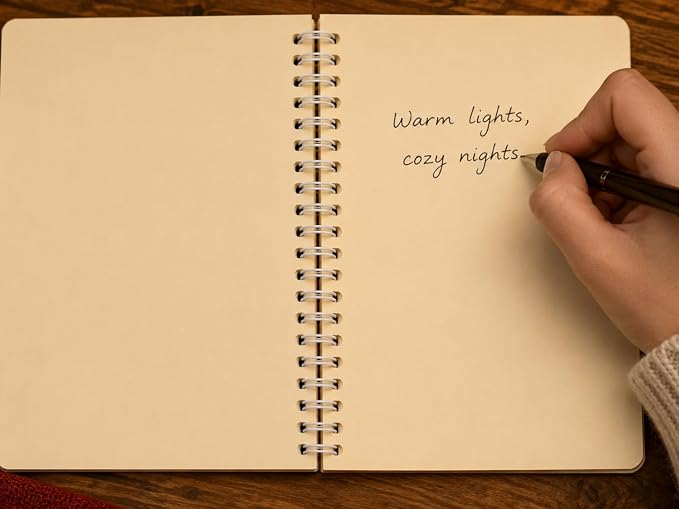 Warm lights,
cozy nights